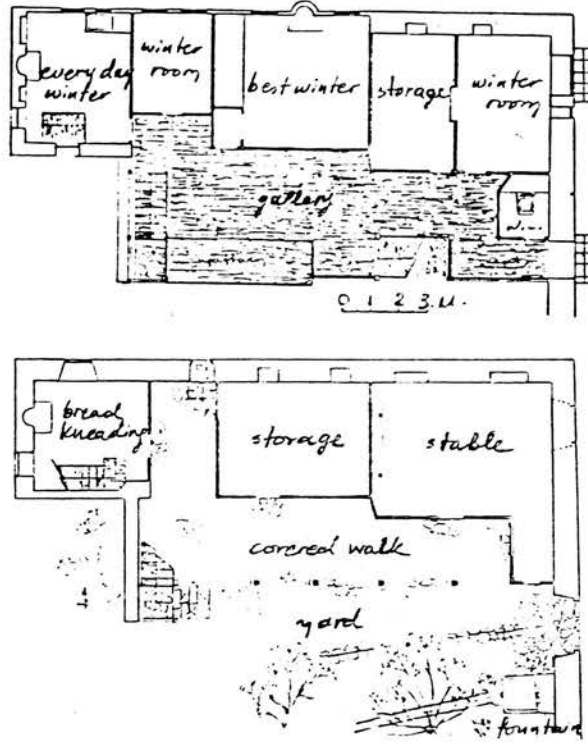 every day
winter
winter
room
best winter
storage
winter
room
gallery
0 1 2 3.M.
bread
kneading
storage
stable
covered walk
yard
fountain